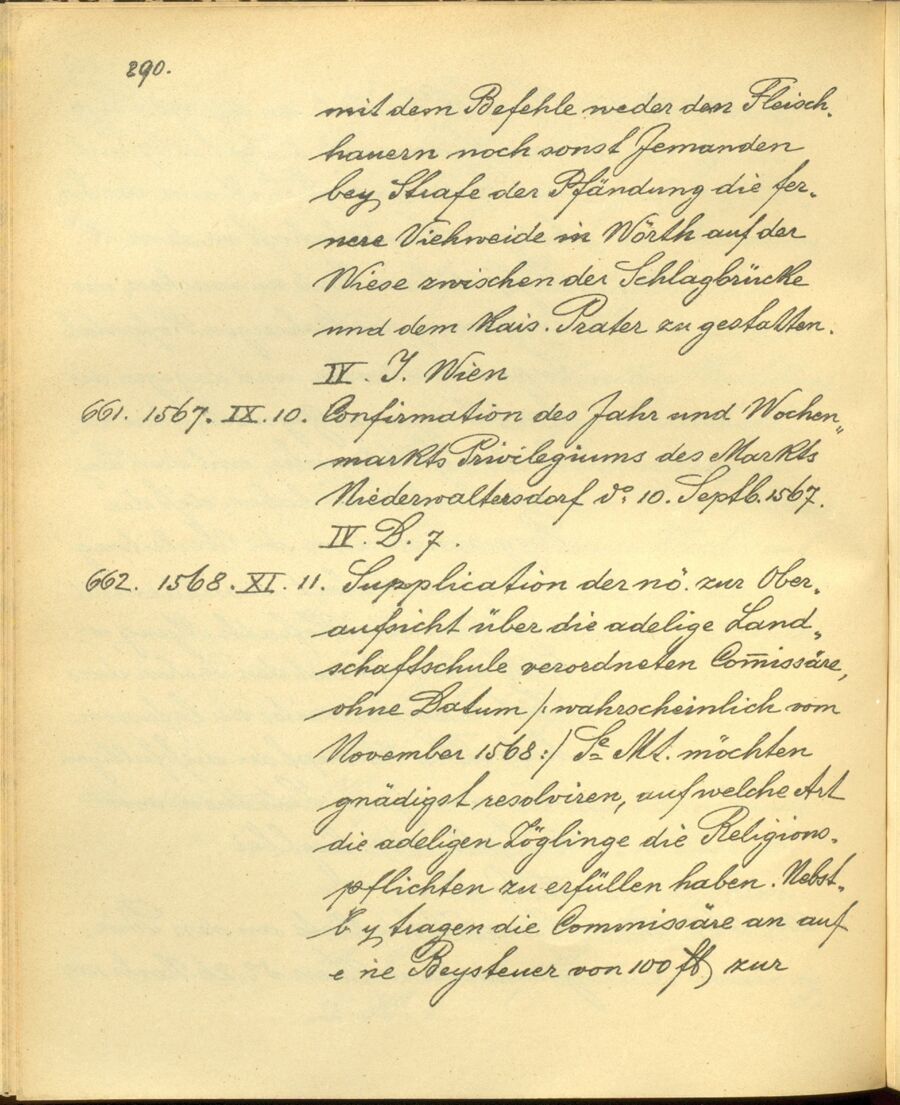 290.
mit dem Befehle weder den Fleisch-
hauern noch sonst Jemanden
bey Strafe der Pfändung die fer-
nere Viehweide in Wörth auf der
Wiese zwischen der Schlagbrücke
und dem Kais. Prater zu gestatten.
IV. J. Wien
661. 1567. IX. 10. Confirmation des Jahr und Wochen„
markts Privilegiums des Markts
Niederwaltersdorf do. 10. Septb. 1567.
IV. D. 7.
662. 1568. XI. 11. Supplication der nö. zur Ober-
aufsicht über die adelige Land„
schaftschule verordneten Com̄issäre,
ohne Datum /: wahrscheinlich vom
November 1568 :/ Se Mt. möchten
gnädigst resolviren, auf welche Art
die adeligen Zöglinge die Religions-
pflichten zu erfüllen haben. Nebst-
b y tragen die Commissäre an auf
e ne Beysteuer von 100 fl zur